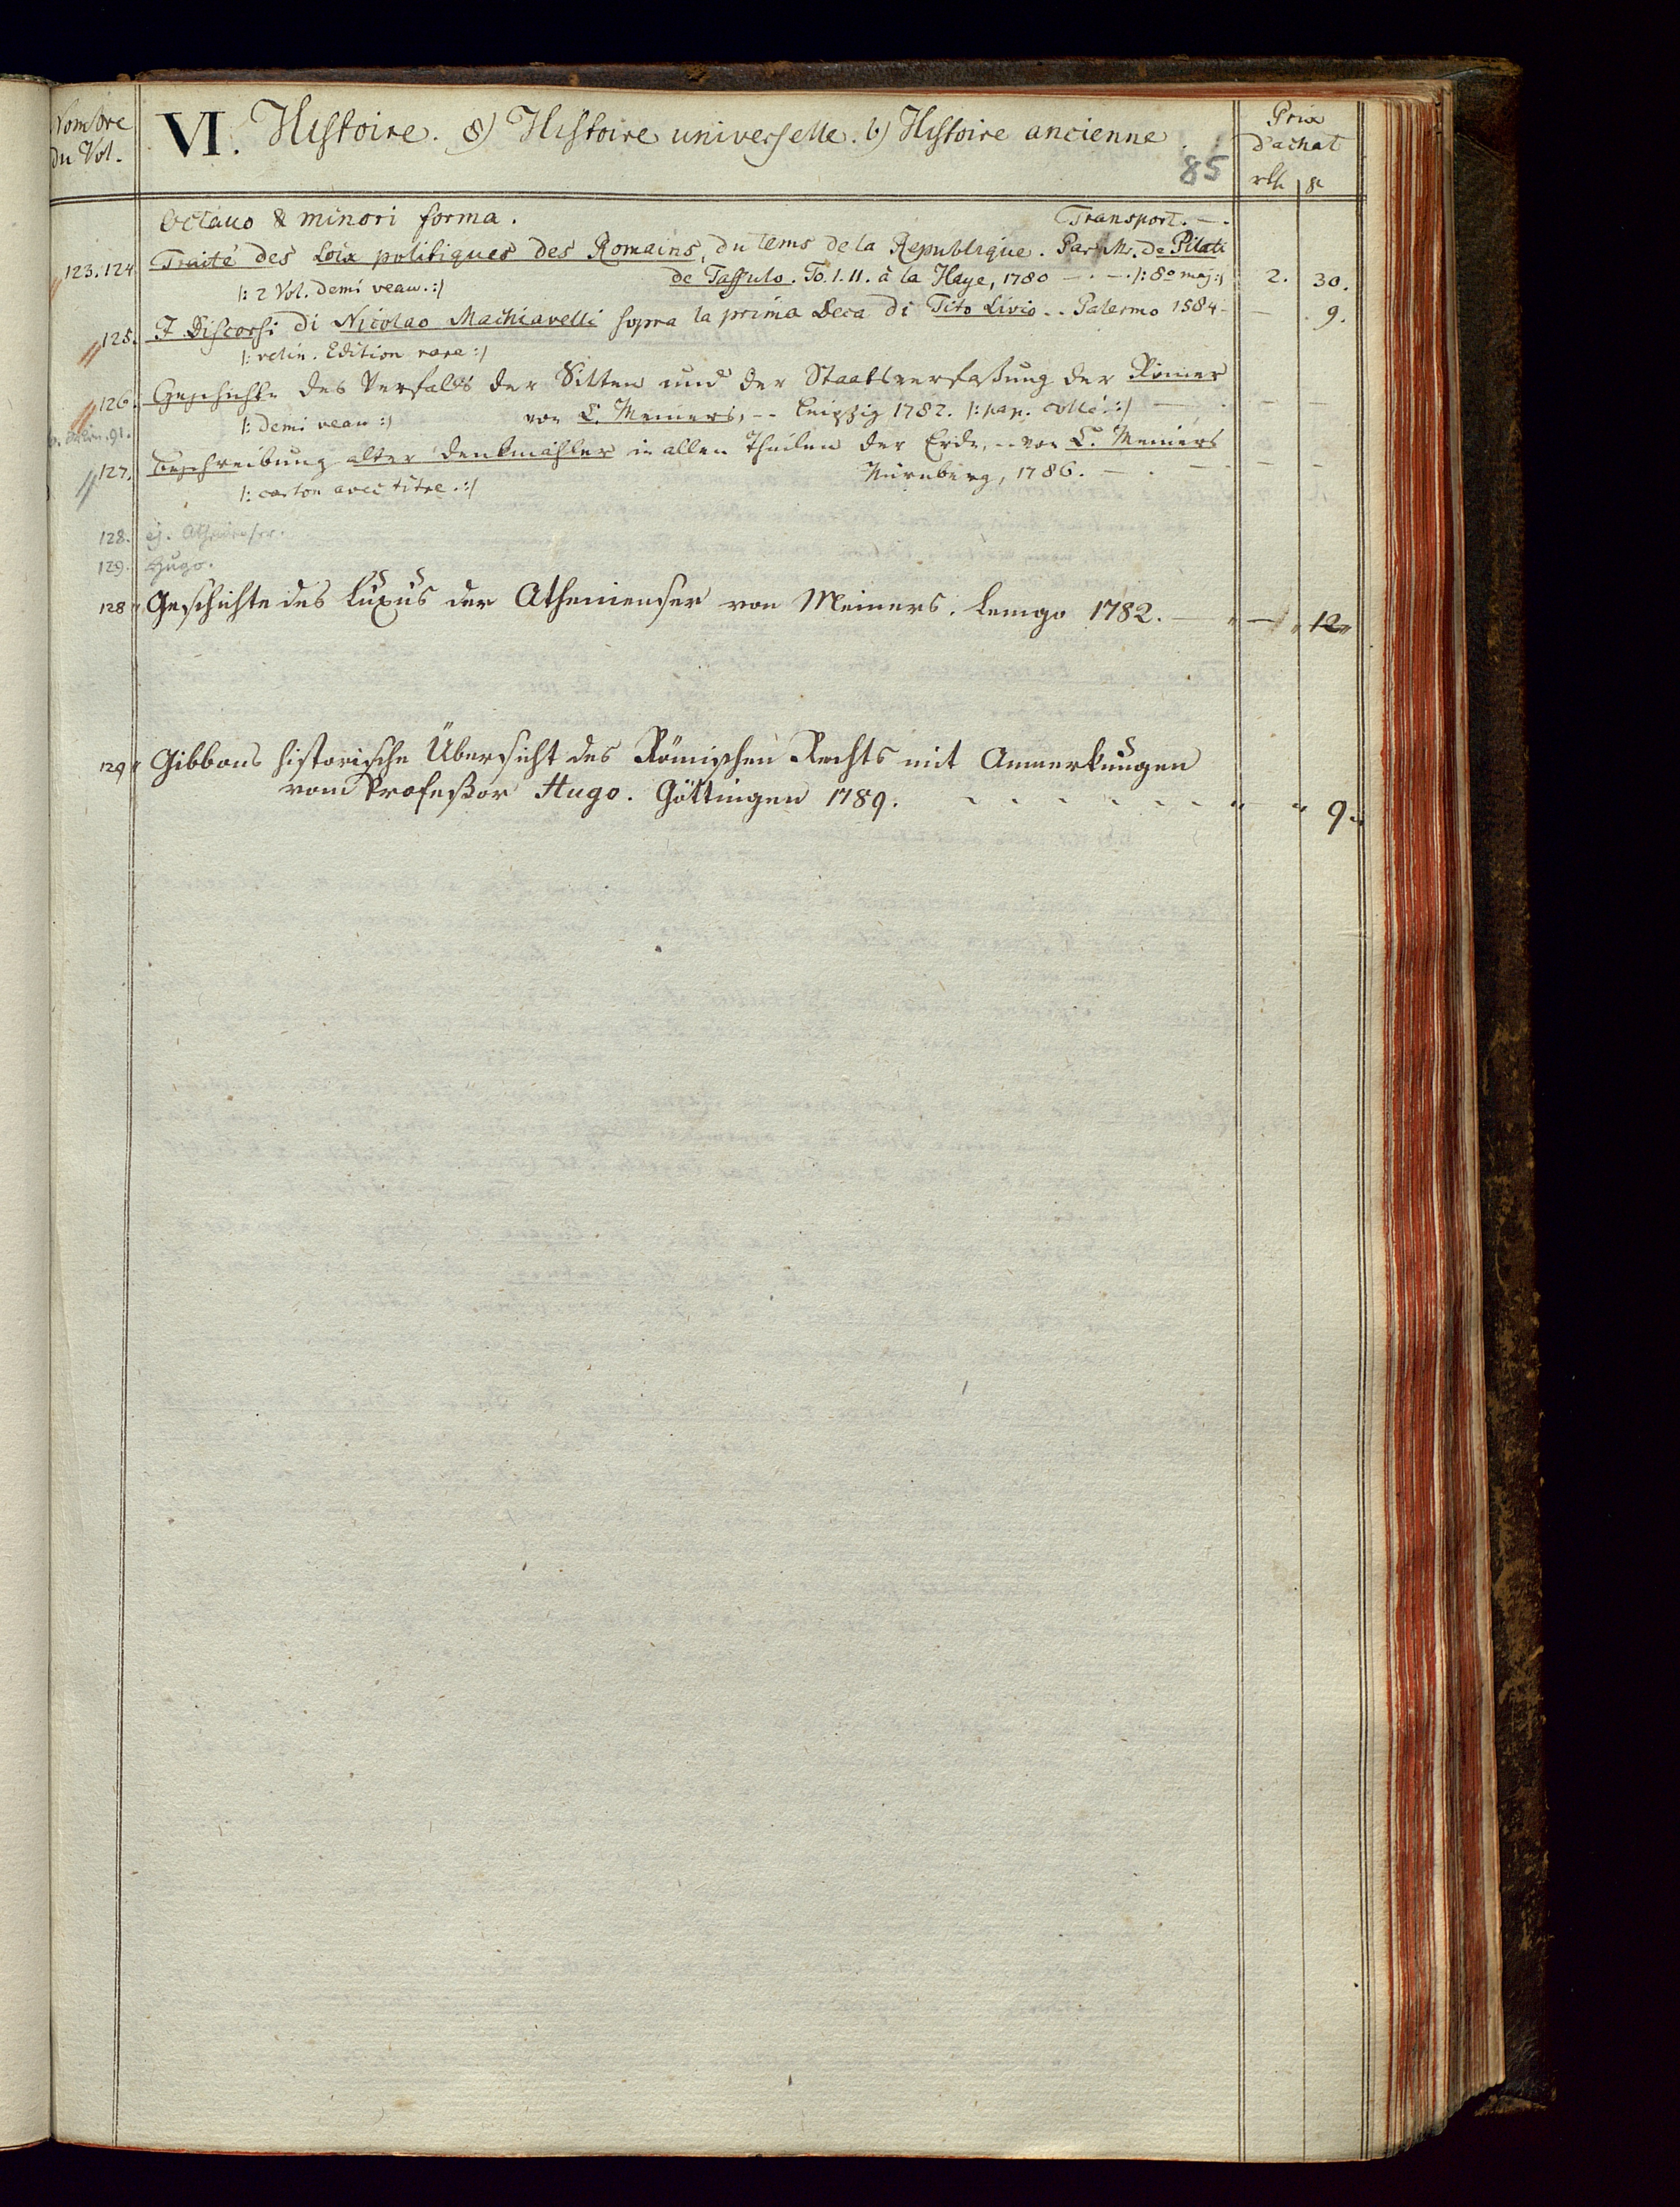 Nombre du Vol.
VI. Histoire. 8) Histoire universelle. b) Histoire ancienne.
85
Prix d'achat
rth gr
Octavo & minori forma. Transport. — .
123.124. Traité des Loix politiques des Romains, du tems de la Republique. Par Mr. De Pilati
de Tassulo. To. I. II. à la Haye, 1780 — . — . /: 8º maj :/ 2. 30.
/: 2 Vol. demi veau. :/
125. I Discorsi di Nicolao Machiavelli sopra la prima Deca di Tito Livio .. Palermo 1584 - — . 9.
/: velin. Edition rare :/
126. Geschichte des Verfalls der Sitten und der Staatsverfaßung der Römer
von C. Meiners, -- Leipzig 1782. /: pap. collé. :/ — . — —
/: demi veau :/
91.
127. Beschreibung alter Denkmähler in allen Theilen der Erde, -- von C. Meiners
Nürnberg, 1786. — . — . — —
/: carton avec titre. :/
128. ej. Athenienser.
129. Hugo.
128 Geschichte des Luxus der Athenienser von Meiners. Lemgo 1782. — " — " 12 "
129 " Gibbons historische Übersicht des Römischen Rechts mit Anmerkungen
vom Profeßor Hugo. Göttingen 1789. - - - - - - " " 9 "